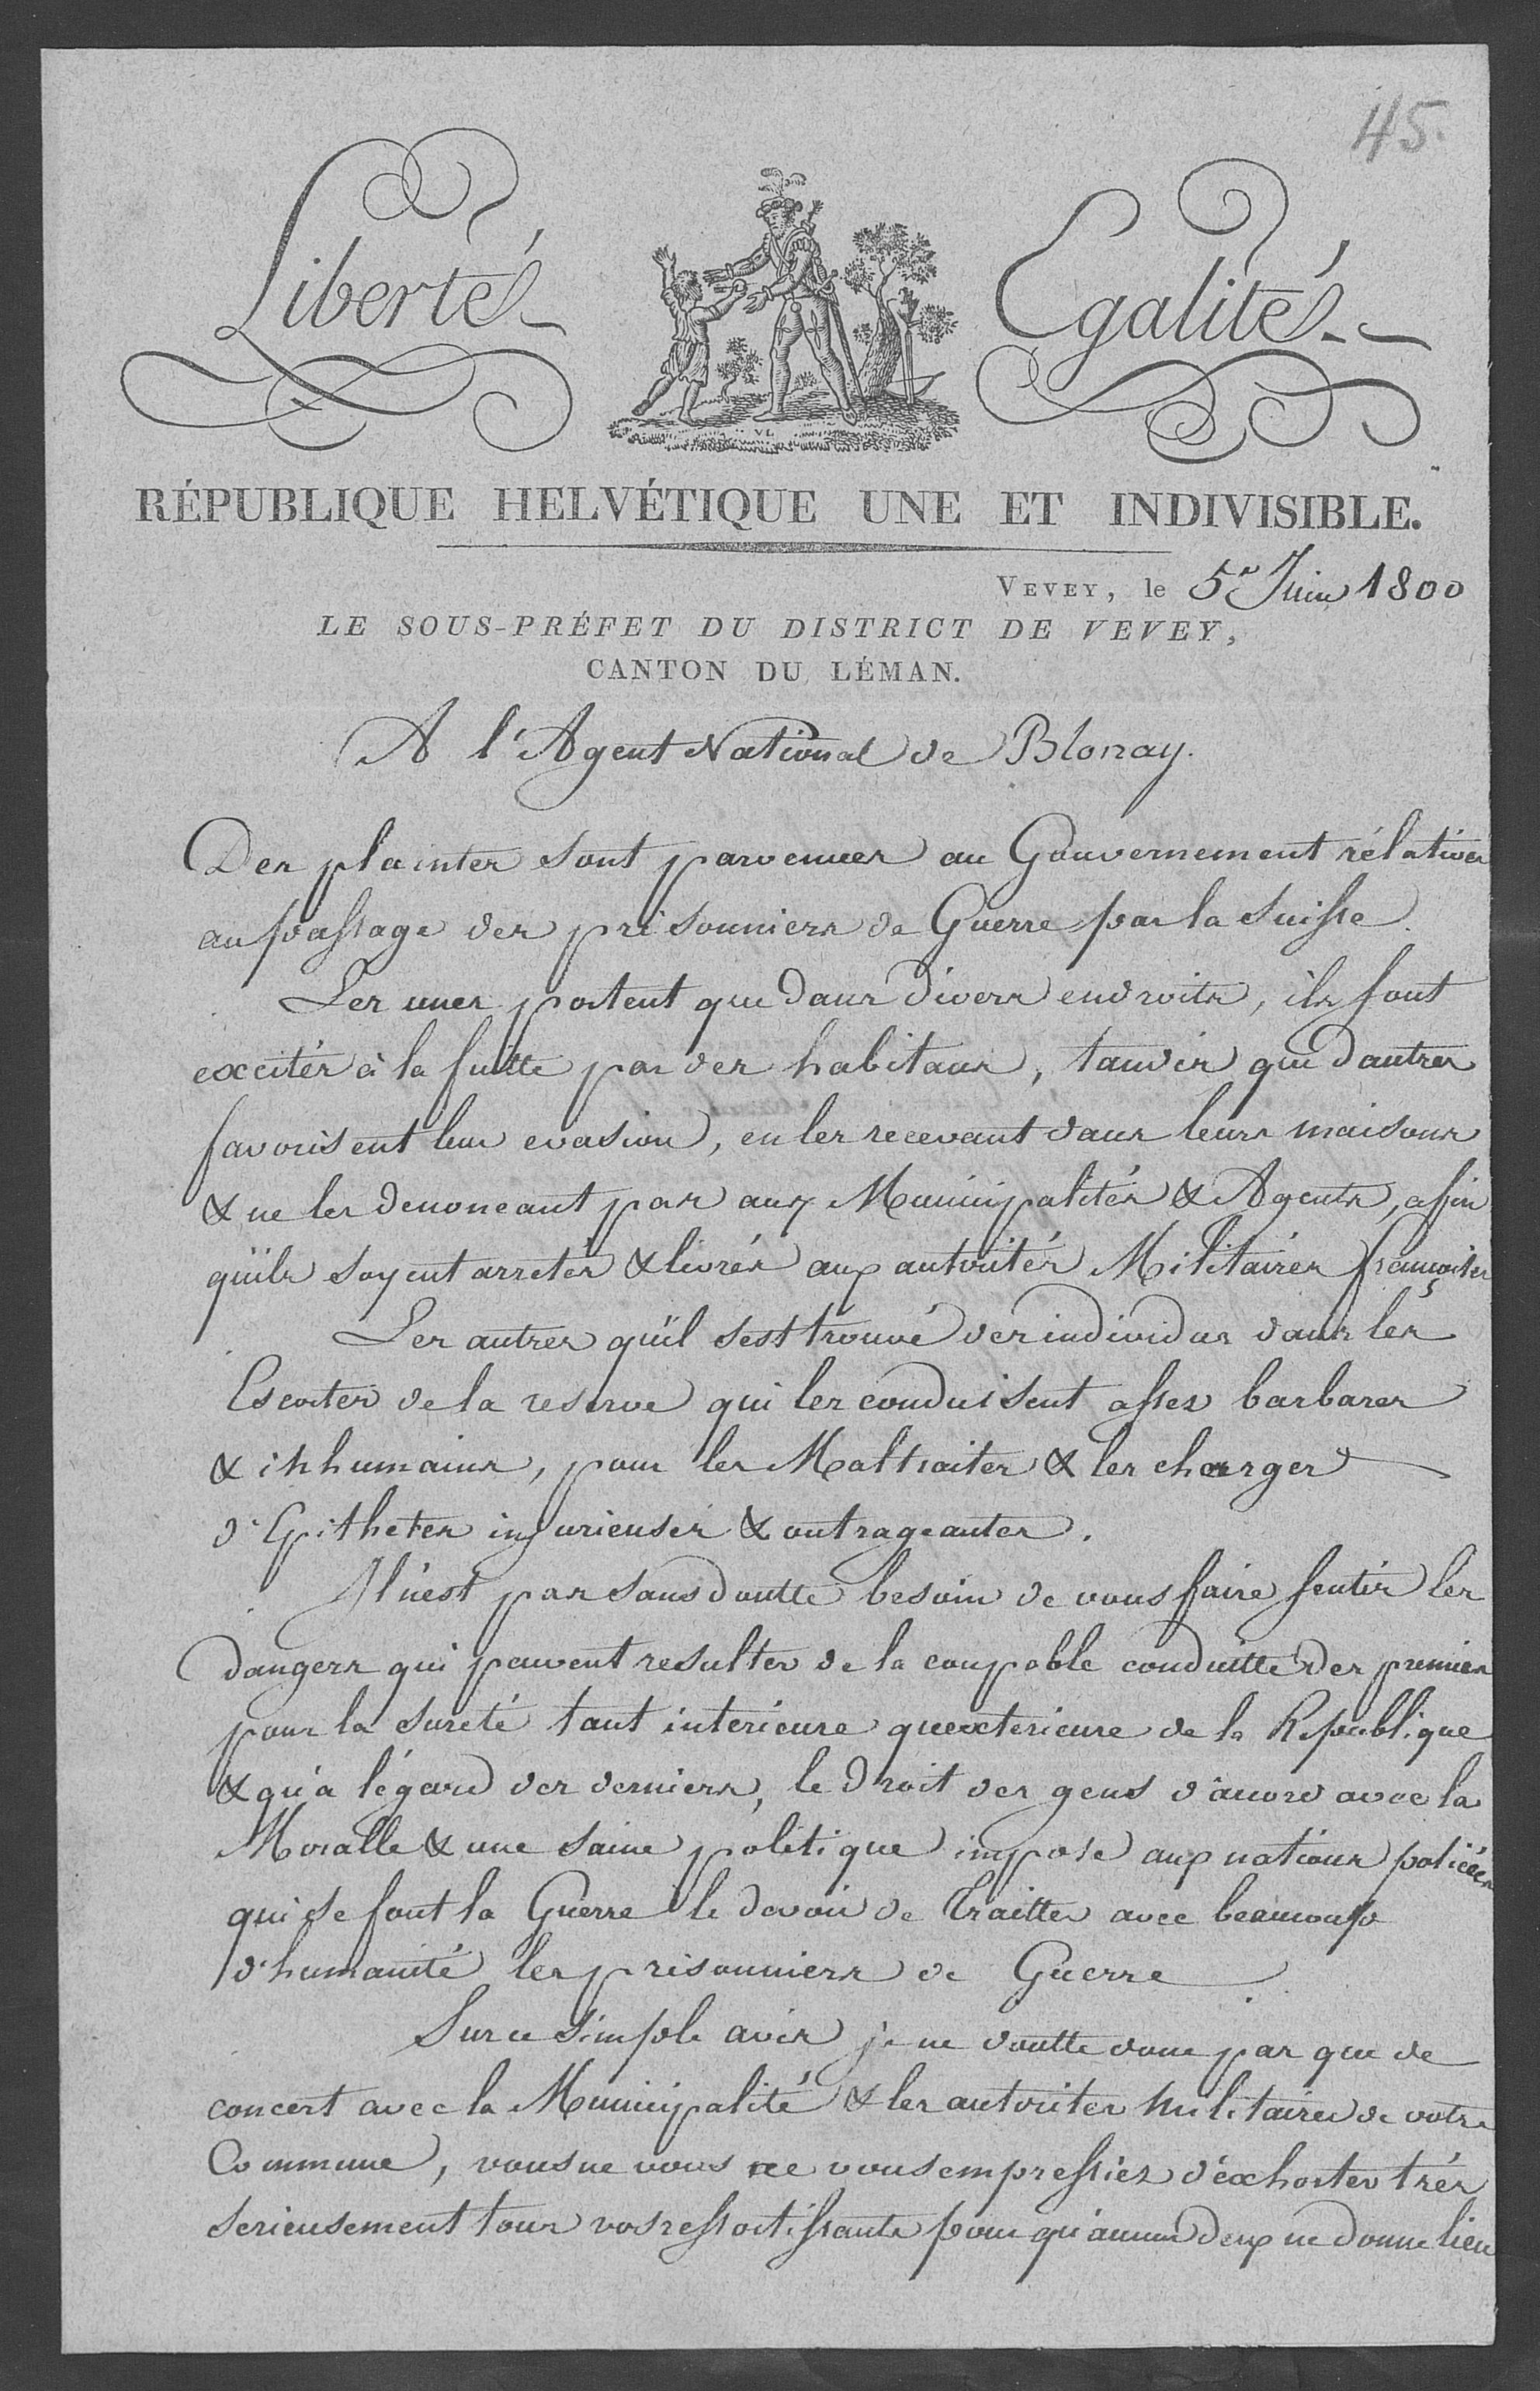 45.
Liberté Egalité
RÉPUBLIQUE HELVÉTIQUE UNE ET INDIVISIBLE.
VEVEY, le 5e Juin 1800
LE SOUS-PRÉFET DU DISTRICT DE VEVEY,
CANTON DU LÉMAN.
A l'Agent National de Blonay.
Des plaintes sont parvenues au Gouvernement rélatives
au passage des prisonniers de Guerre par la Suisse.
Les unes portent que dans divers endroits, ils sont
excités à la fuitte par des habitans, tandis que dautres
favorisent leur evasion, en les recevant dans leurs maisons
& ne les denoncant pas aux Municipalités & Agents, affin
qu'ils soyent arretés & livrés aux autorités Militaires françoises
Les autres qu'il sest trouvé des individus dans les
Escortes de la reserve qui les conduisent asses barbares
& inhumains, pour les Maltraiter & les charger
d'Epithetes injurieuses & outrageantes.
Il n'est pas sans doutte besoin de vous faire sentir les
dangers qui peuvent resulter de la coupable conduitte des premiers
pour la sureté tant interieure quexterieure de la Republique
& qu'a légard des derniers, le droit des gens d'accord avec la
Moralle & une saine politique impose aux nations policées
qui se font la Guerre le devoir de traitter avec beaucoup
d'humanité les prisonniers de Guerre.
Sur ce simple avis je ne doutte donc pas que de
concert avec la Municipalité & les autorites Militaires de votre
Commune, vous ne vous ne vous empressiez d'éxhorter trés
serieusement tous vos ressortissants pour qu'aucun deux ne donne lieu